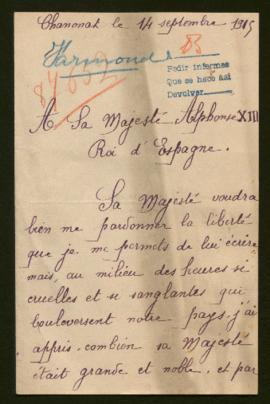 Chanonat le 14 septembre 1915
Harmond
Pedir informes
Que se hace así
Devolver
A Sa Majesté Alphonse XIII
Roi d'Espagne.
Sa Majesté voudra
bien me pardonner la liberté
que je me permets de lui écrire
mais, au milieu des heures si
cruelles et si sanglantes qui
bouleversent notre pays, j'ai
appris combien sa Majesté
était grande et noble, et par